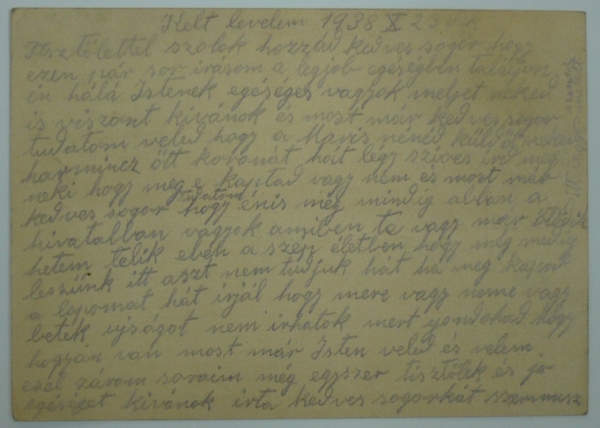 Kelt levelem 1938 X 23 án
Tisztölettel szolok hozzád kedves sogor hogy
ezen pár sor irásom a legjob egeségben találjon
én hálá Istenek egeséges vagyok melyet neked
is viszont kivánok és most már kedves sogor
tudatom veled hogy a Maris nénéd küld neked
harmincz ött koronát hát légy szives ird meg
neki hogy meg e kaptad vagy nem és most már
kedves sogor tudatom hogy énis még mindig abban a
hivatalban vagyok amiben te vagy mer
hetem telik eben a szép életben hogy még medig
leszünk itt aszt nem tudjuk hát ha meg kapod
a lapomat hát irjál hogy mere vagy neme vagy
beték ujságot nem irhatok mert gondolhod hogy
hogyan van most már Isten veled és velem
ezel zárom soraim még egyszer tisztölek és jo
egéséget kivánok irta kedves sogorkát